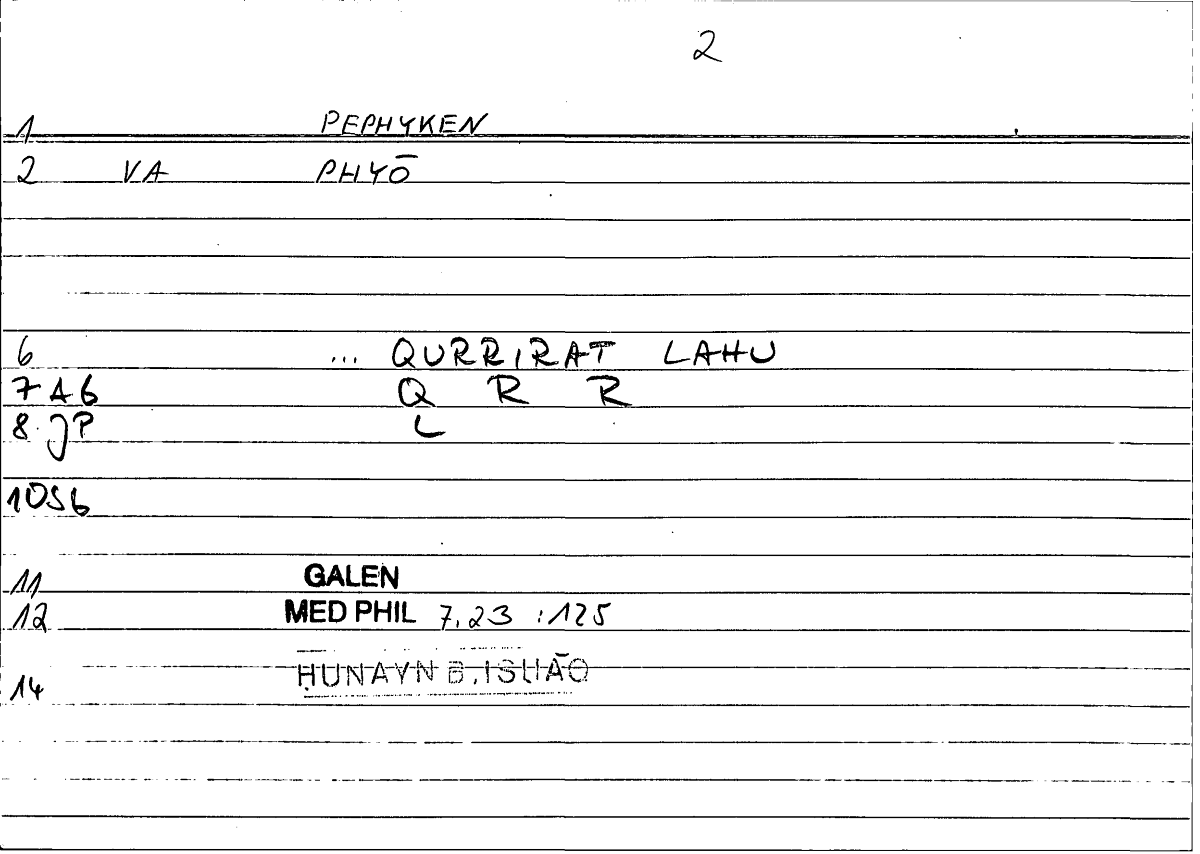 2
1 PEPHYKEN
2 VA PHYŌ
6 ... QURRIRAT LAHU
7 A6 Q R R
8 JP L
10S6
11 GALEN
12 MED PHIL 7,23 :125
14 ḤUNAYN B.ISḤĀQ